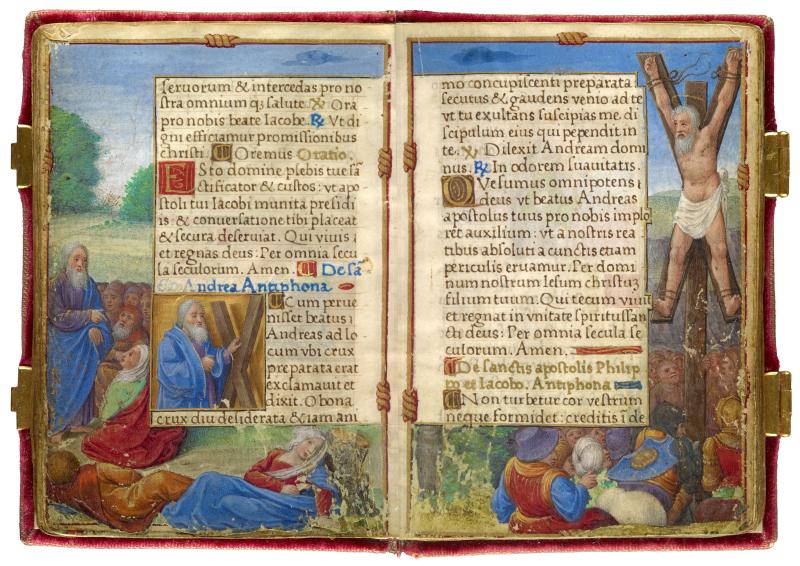 seruorum & intercedas pro no
stra omnium q3 salute. ℣ Ora
pro nobis beate Iacobe. ℞ Vt di
gni efficiamur promissionibus
christi. Oremus Oratio.
ESto domine plebis tue sā
ctificator & custos: vt apo-
stoli tui Iacobi munita presidi
is & conuersatione tibi placeat
& secura deseruiat. Qui viuis
et regnas deus: Per omnia secu
la seculorum. Amen. De sā
Andrea Antiphona
CUm perue
nisset beatus
Andreas ad lo
cum vbi crux
preparata erat
exclamauit et
dixit. O bona
crux diu desiderata & iam ani
mo concupiscenti preparata
secutus & gaudens venio ad te
vt tu exultans suscipias me. di
scipulum eius qui pependit in
te. ℣ Dilexit Andream domi
nus. ℞ In odorem suauitatis.
QVesumus omnipotens
deus vt beatus Andreas
apostolus tuus pro nobis implo
ret auxilium: vt a nostris rea
tibus absoluti a cunctis etiam
periculis eruamur. Per domi
num nostrum Iesum christuȝ
filium tuum. Qui tecum viuit
et regnat in vnitate spiritussan
cti deus: Per omnia secula se
culorum. Amen.
De sanctis apostolis Philip
po et Iacobo. Antiphona
NOn turbetur cor vestrum
neque formidet: creditis ī de